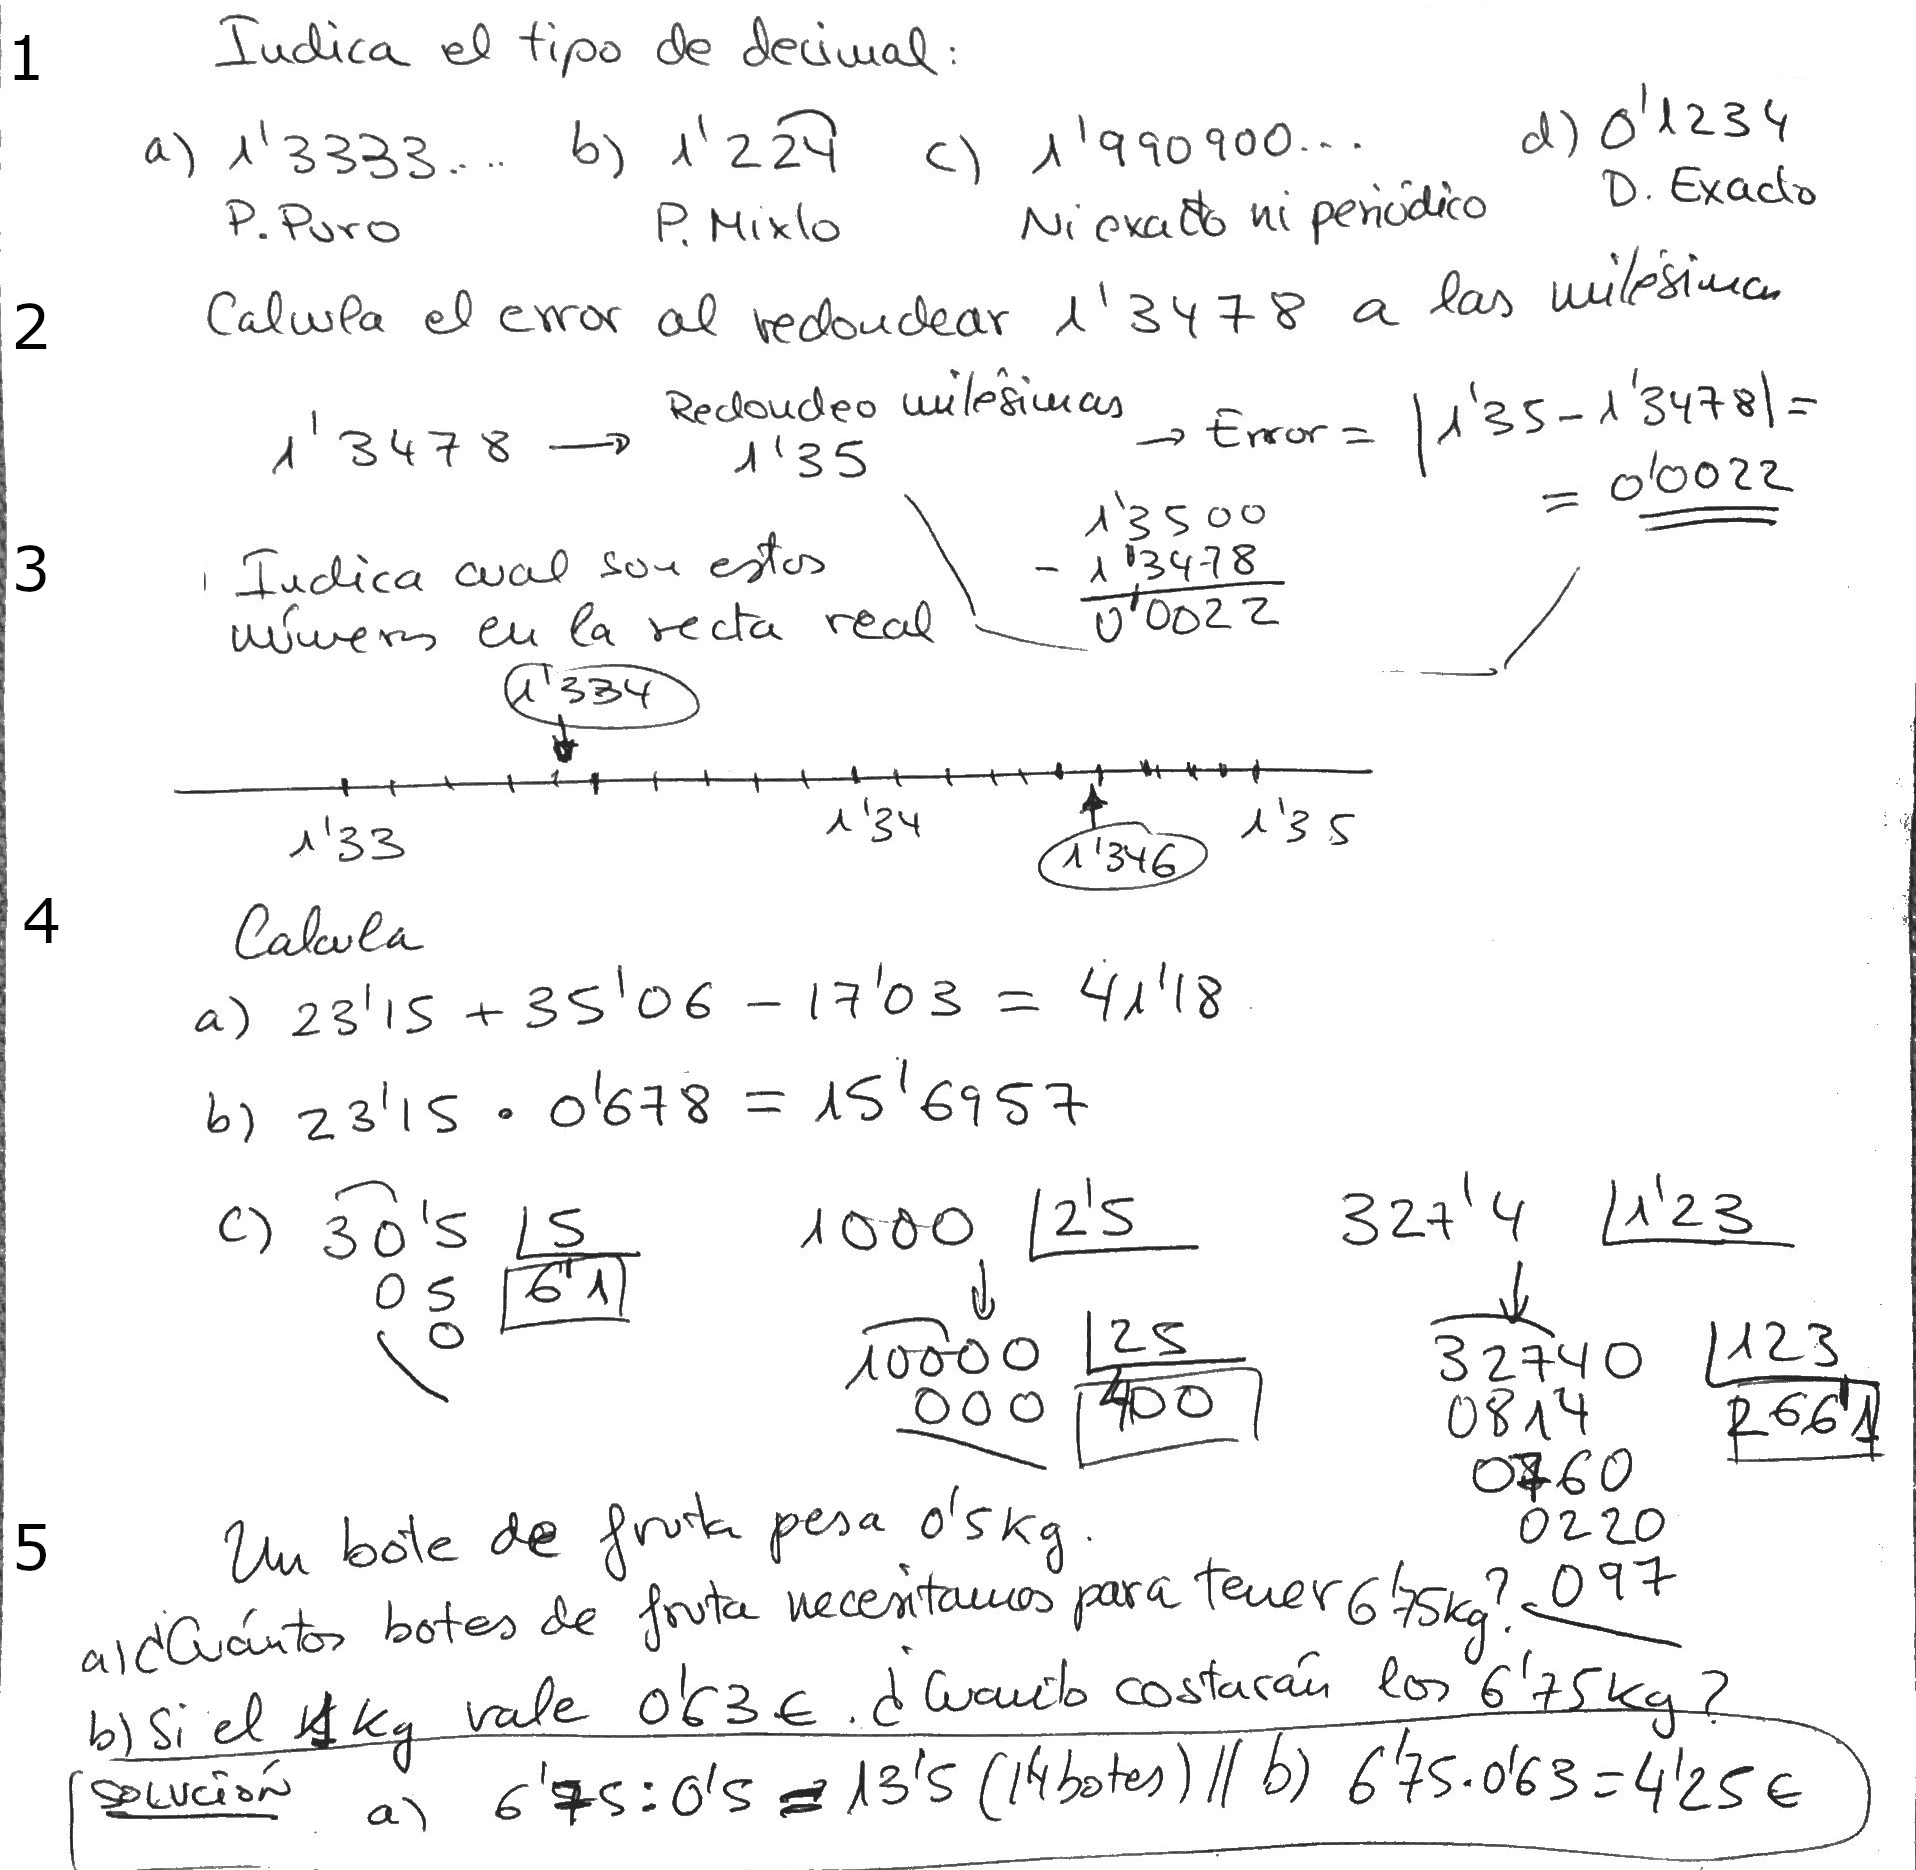 1 Indica el tipo de decimal:
a) 1'3333... b) 1'224 c) 1'990900... d) 0'1234
P. Puro P. Mixto Ni exacto ni periódico D. Exacto
2 Calcula el error al redondear 1'3478 a las milésimas
1'3478 → Redondeo milésimas 1'35 → Error = |1'35 - 1'3478| =
= 0'0022
1'3500
- 1'3478
0'0022
3 Indica cual son estos
números en la recta real
1'334
1'33 1'34 1'35
1'346
4 Calcula
a) 23'15 + 35'06 - 17'03 = 41'18
b) 23'15 · 0'678 = 15'6957
c) 30'5 | 5 1000 | 2'5 327'4 | 1'23
05 6'1
0
10000 | 25 32740 | 123
000 400 0814 266'1
0760
0220
097
5 Un bote de fruta pesa 0'5 kg.
a) ¿Cuántos botes de fruta necesitamos para tener 6'75 kg?
b) Si el 1 kg vale 0'63 €. ¿Cuanto costarán los 6'75 kg?
SOLUCIÓN a) 6'75 : 0'5 = 13'5 (14 botes) // b) 6'75 · 0'63 = 4'25 €